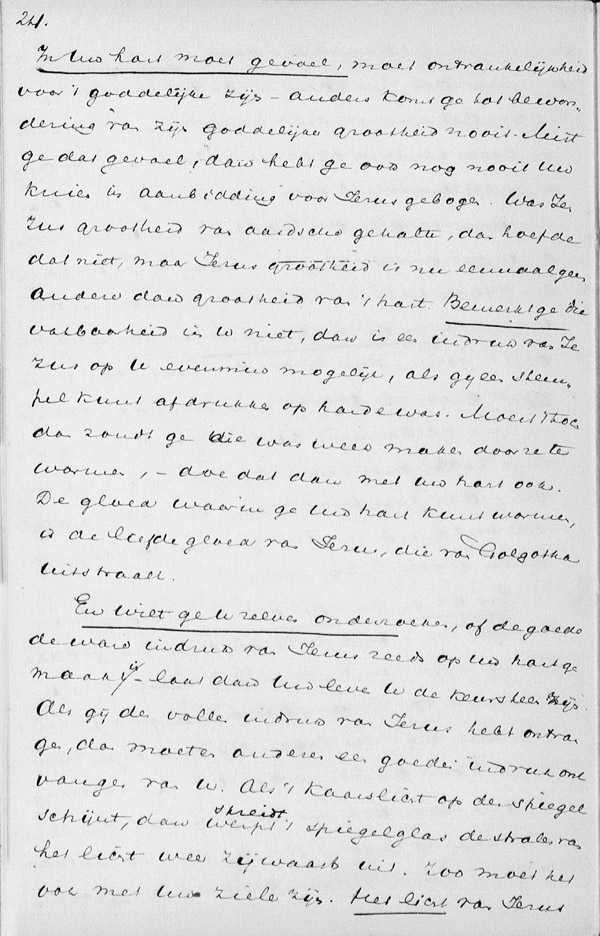 24.
In uw hart moet gevoel, moet ontvankelijkheid
voor 't goddelijke zijn - anders komt ge tot bewon-
dering van zijn goddelijke grootheid nooit. Mist
ge dat gevoel, dan hebt ge ook nog nooit uw
knieën in aanbidding voor Jezus gebogen. Was Je-
zus grootheid van aardsche gehalte, dan hoefde
dat niet, maar Jezus grootheid is nu eenmaal geen
andere dan grootheid van 't hart. Bemerkt ge die
vatbaarheid in U niet, dan is een indruk van Je
zus op U evenmin mogelijk, als gij een stem-
pel kunt afdrukken op harde was. Moest ge
dan zoudt ge die was week maken door ze te
warmen, - doe dat dan met uw hart ook.
De gloed waarin ge uw hart kunt warmen,
is de liefdegloed van Jezus, die van Golgotha
uitstraalt.
En wilt ge U zelven onderzoeken, of de goede
de ware indruk van Jezus reeds op uw hart ge
maakt is - laat dan uw leven U de keursteen zijn.
Als gij den vollen indruk van Jezus hebt ontvan
gen, dan moeten anderen een goeden indruk ont
vangen van U. Als 't kaarslicht op den spiegel
schijnt, dan werpt 't spiegelglas de stralen van
het licht weer zijwaarts uit. Zoo moet het
ook met uw ziele zijn. Het licht van Jezus